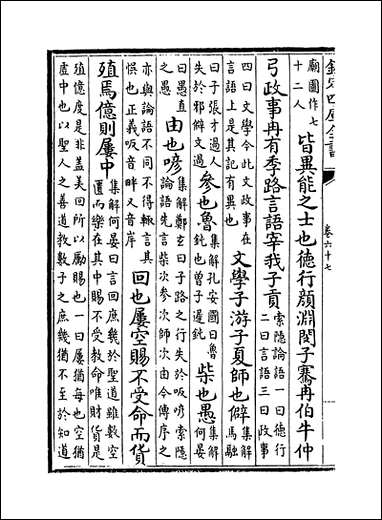 欽定四庫全書
卷六十七
廟圖作七
十二人
皆異能之士也德行顏淵閔子騫冉伯牛仲
弓政事冉有季路言語宰我子貢
索隱論語一曰德行
二曰言語三曰政事
四曰文學今此文政事在
言語上是其記有異也
文學子游子夏師也僻
集解
馬融
曰子張才過人
失於邪僻文過
參也魯
集解孔安國曰魯
鈍也曾子遲鈍
柴也愚
集解
何晏
曰愚直
之愚
由也喭
集解鄭玄曰子路之行失於吸喭索隱
論語先言柴次參次師次由今傳序之
亦與論語不同不得輙言其
悞也正義吸音畔又音岸
回也屢空賜不受命而貨
殖焉億則屢中
集解何晏曰言回庶幾於聖道雖數空
匱而樂在其中賜不受教命唯財貨是
殖億度是非蓋美回所以勵賜也一曰屢猶每也空猶
虛中也以聖人之善道教數子之庶幾猶不至於知道